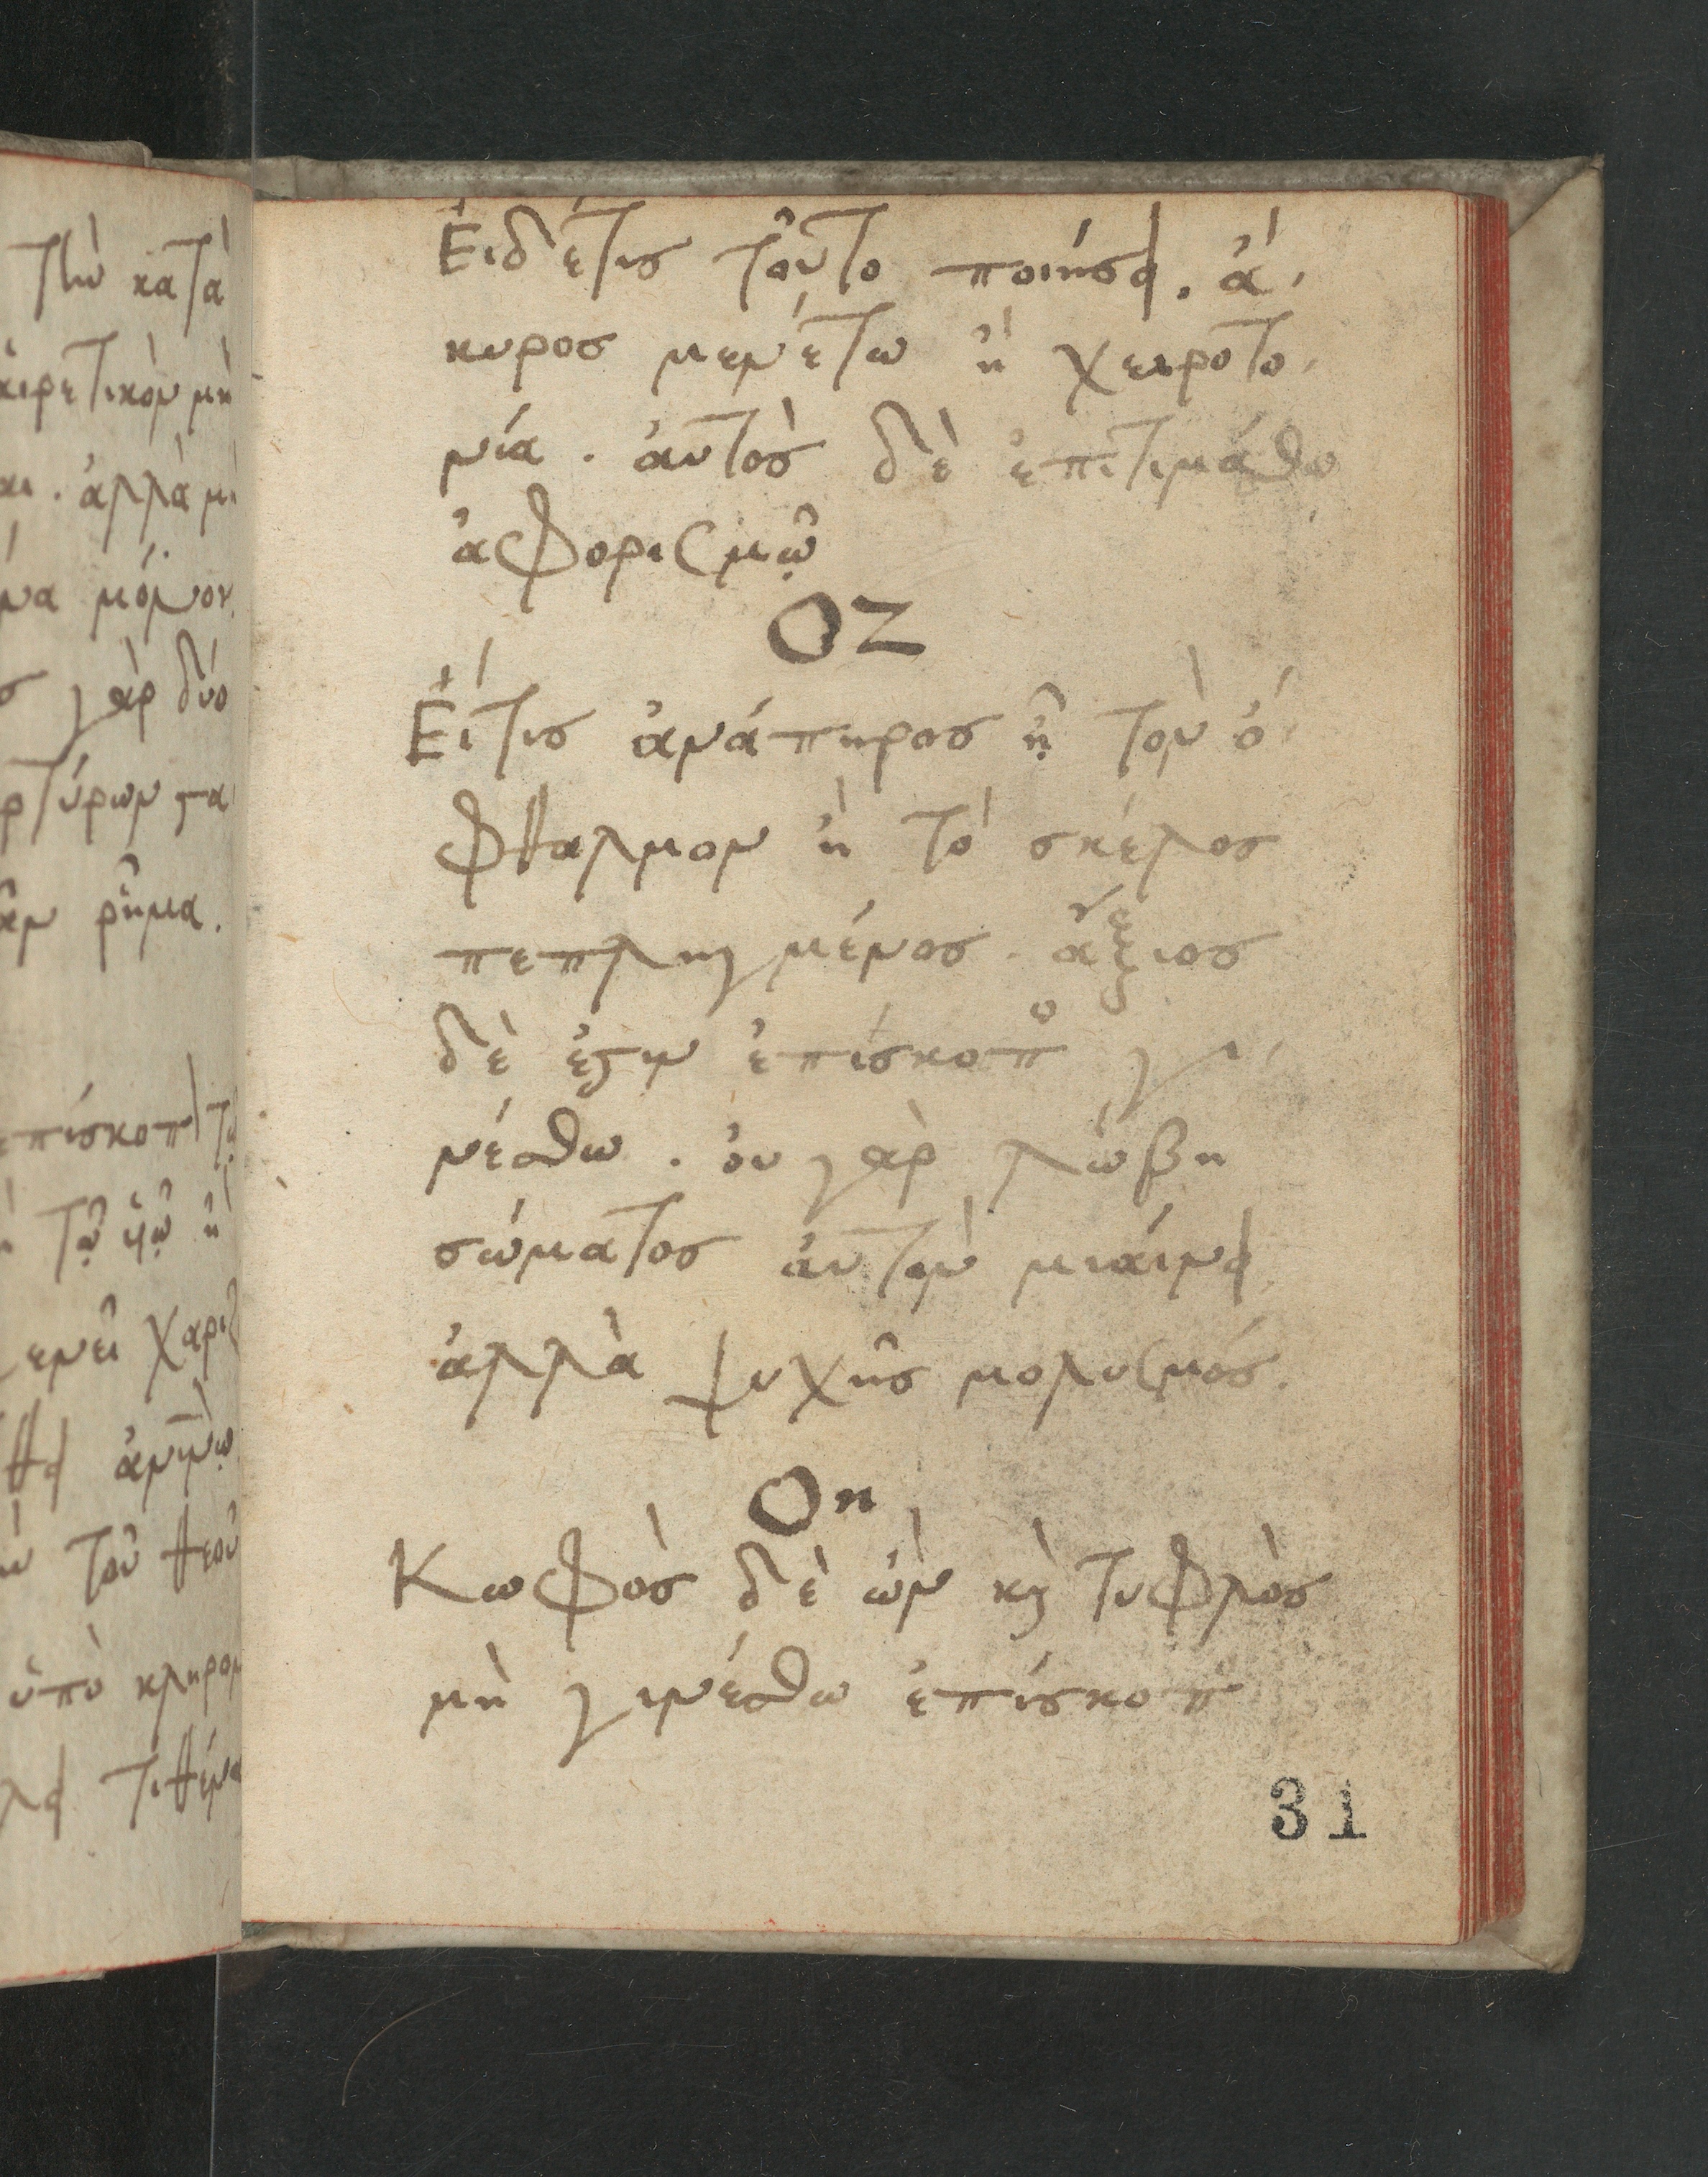 τὴν κατὰ
αἱρετικὸν μὴ
αι. ἀλλὰ μ
να μόνον
ς γὰρ δύο
ρτύρων στα
ᾶν ρῆμα.
επίσκοπ
τῷ υἱῷ ἢ
χαρι
τοῦ θεοῦ
ὑπὸ κληρον
τιθένα
Ἐιδέτισ τοῦτο ποιήσει. ἄ-
κυροσ μενέτω ἡ χειροτο-
νία. ἀυτὸσ δὲ ἐπιτιμάσθω
ἀφορισμῷ
ΟΖ
Ἐίτισ ἀνάπηροσ ᾖ τὸν ὀ-
φθαλμον ἢ τὸ σκέλοσ
πεπληγμένοσ. ἄξιοσ
δὲ ἐστιν ἐπίσκοπο γι-
νέσθω. ὀυ γὰρ λώβη
σώματοσ ἀυτὸν μιάινει
ἀλλὰ ψυχῆσ μολυσμόσ.
Οη
Κωφὸσ δὲ ὢν κὶ τυφλὸσ
μὴ γινέσθω ἐπίσκοπο
31